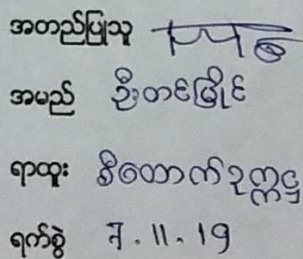 အတည်ပြုသူ
အမည် ဦးတင်မြိုင်
ရာထူး စီထောက်ဥက္ကဋ္ဌ
ရက်စွဲ 7.11.19